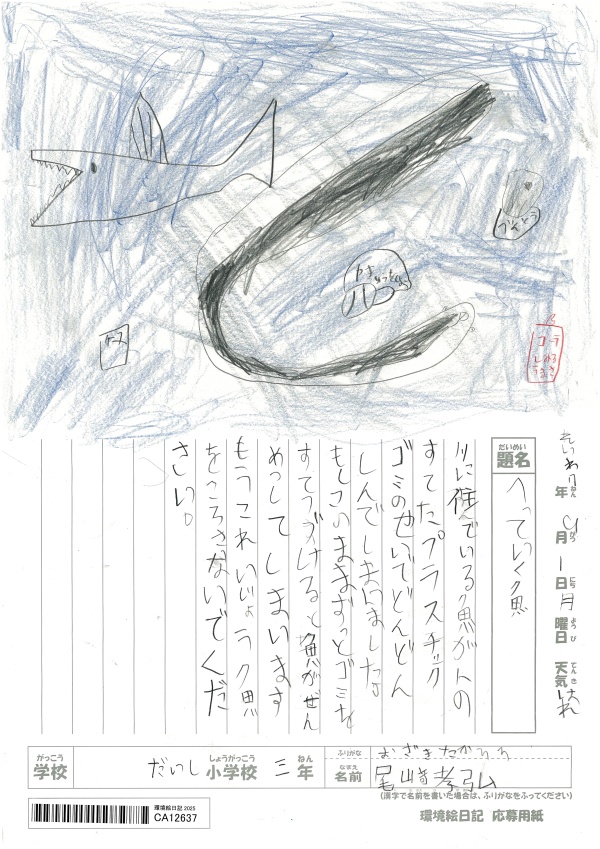 ぶんとう
ケース
コーラ
だいめい
題名
へっていく魚
年 9月1日月曜日 天気 はれ
ねん がつ にち ようび てんき
川に住んでいる魚が人の
すてたプラスチック
ゴミのせいでどんどん
しんでしまいました。
もしこいままずっとゴミを
すてつづけると魚がぜん
めつしてしまいます
もうこれいじょう魚
をころさないでくだ
さい。
がっこう
学校
しょうがっこう ねん
だいし小学校 三年
ふりがな
なまえ
名前
おざきたかひろ
尾﨑孝弘
(漢字で名前を書いた場合は、ふりがなをふってください)
環境絵日記 2025
CA12637
環境絵日記 応募用紙